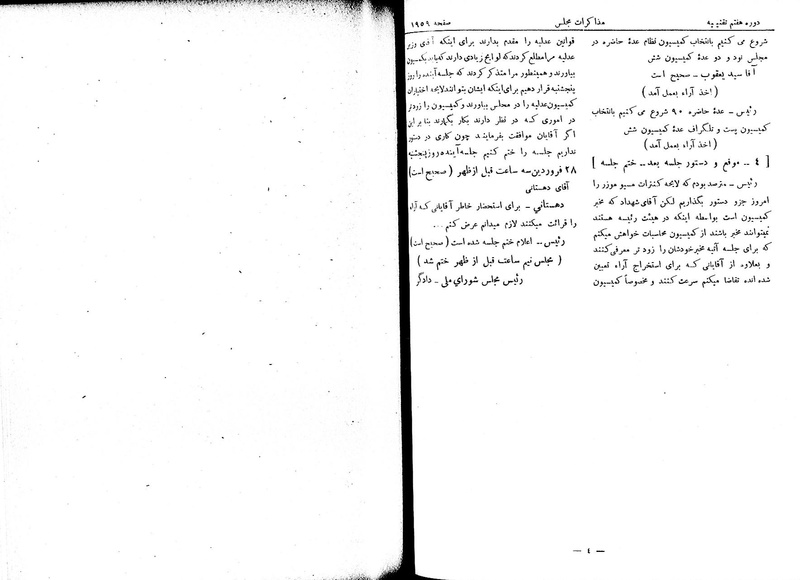 دوره هفتم تقنینیه
مذاکرات مجلس
صفحه ۱۹۵۹
شروع می کنیم بانتخاب کمیسیون نظام عدهٔ حاضره در
مجلس نود و دو عدهٔ کمیسیون شش
آقا سید یعقوب - صحیح است
( اخذ آراء بعمل آمد )
رئیس - عدهٔ حاضره ۹۰ شروع می کنیم بانتخاب
کمیسیون پست و تلگراف عدهٔ کمیسیون شش
( اخذ آراء بعمل آمد )
[ ٤ - موقع و دستور جلسه بعد - ختم جلسه ]
رئیس - مترصد بودم که لایحه کنترات مسیو موزر را
امروز جزو دستور بگذاریم لکن آقای شهداد که مخبر
کمیسیون است بواسطه اینکه در هیئت رئیسه هستند
نمیتوانند مخبر باشند از کمیسیون محاسبات خواهش میکنم
که برای جلسه آتیه مخبر خودشان را زودتر معرفی کنند
و بعلاوه از آقایانی که برای استخراج آراء تعیین
شده اند تقاضا میکنم سرعت کنند و مخصوصاً کمیسیون
قوانین عدلیه را مقدم بدارند برای اینکه آقای وزیر
عدلیه مرا مطلع کردند که لوایح زیادی دارند که باید بکمیسیون
بیاورند و همینطور مرا متذکر کردند که جلسه آینده را روز
پنجشنبه قرار دهیم برای اینکه ایشان بتوانند لایحه اختیارات
کمیسیون عدلیه را در مجلس بیاورند و کمیسیون را زودتر
در اموری که در نظر دارند بکار بگمارند بنا بر این
اگر آقایان موافقت بفرمایند چون کاری در دستور
نداریم جلسه را ختم کنیم جلسه آینده روز پنجشنبه
۲۸ فروردین سه ساعت قبل از ظهر ( صحیح است )
آقای دهستانی
دهستانی - برای استحضار خاطر آقایانی که آراء
را قرائت میکنند لازم میدانم عرض کنم ...
رئیس - اعلام ختم جلسه شده است ( صحیح است )
( مجلس نیم ساعت قبل از ظهر ختم شد )
رئیس مجلس شورای ملی - دادگر
— ٤ —